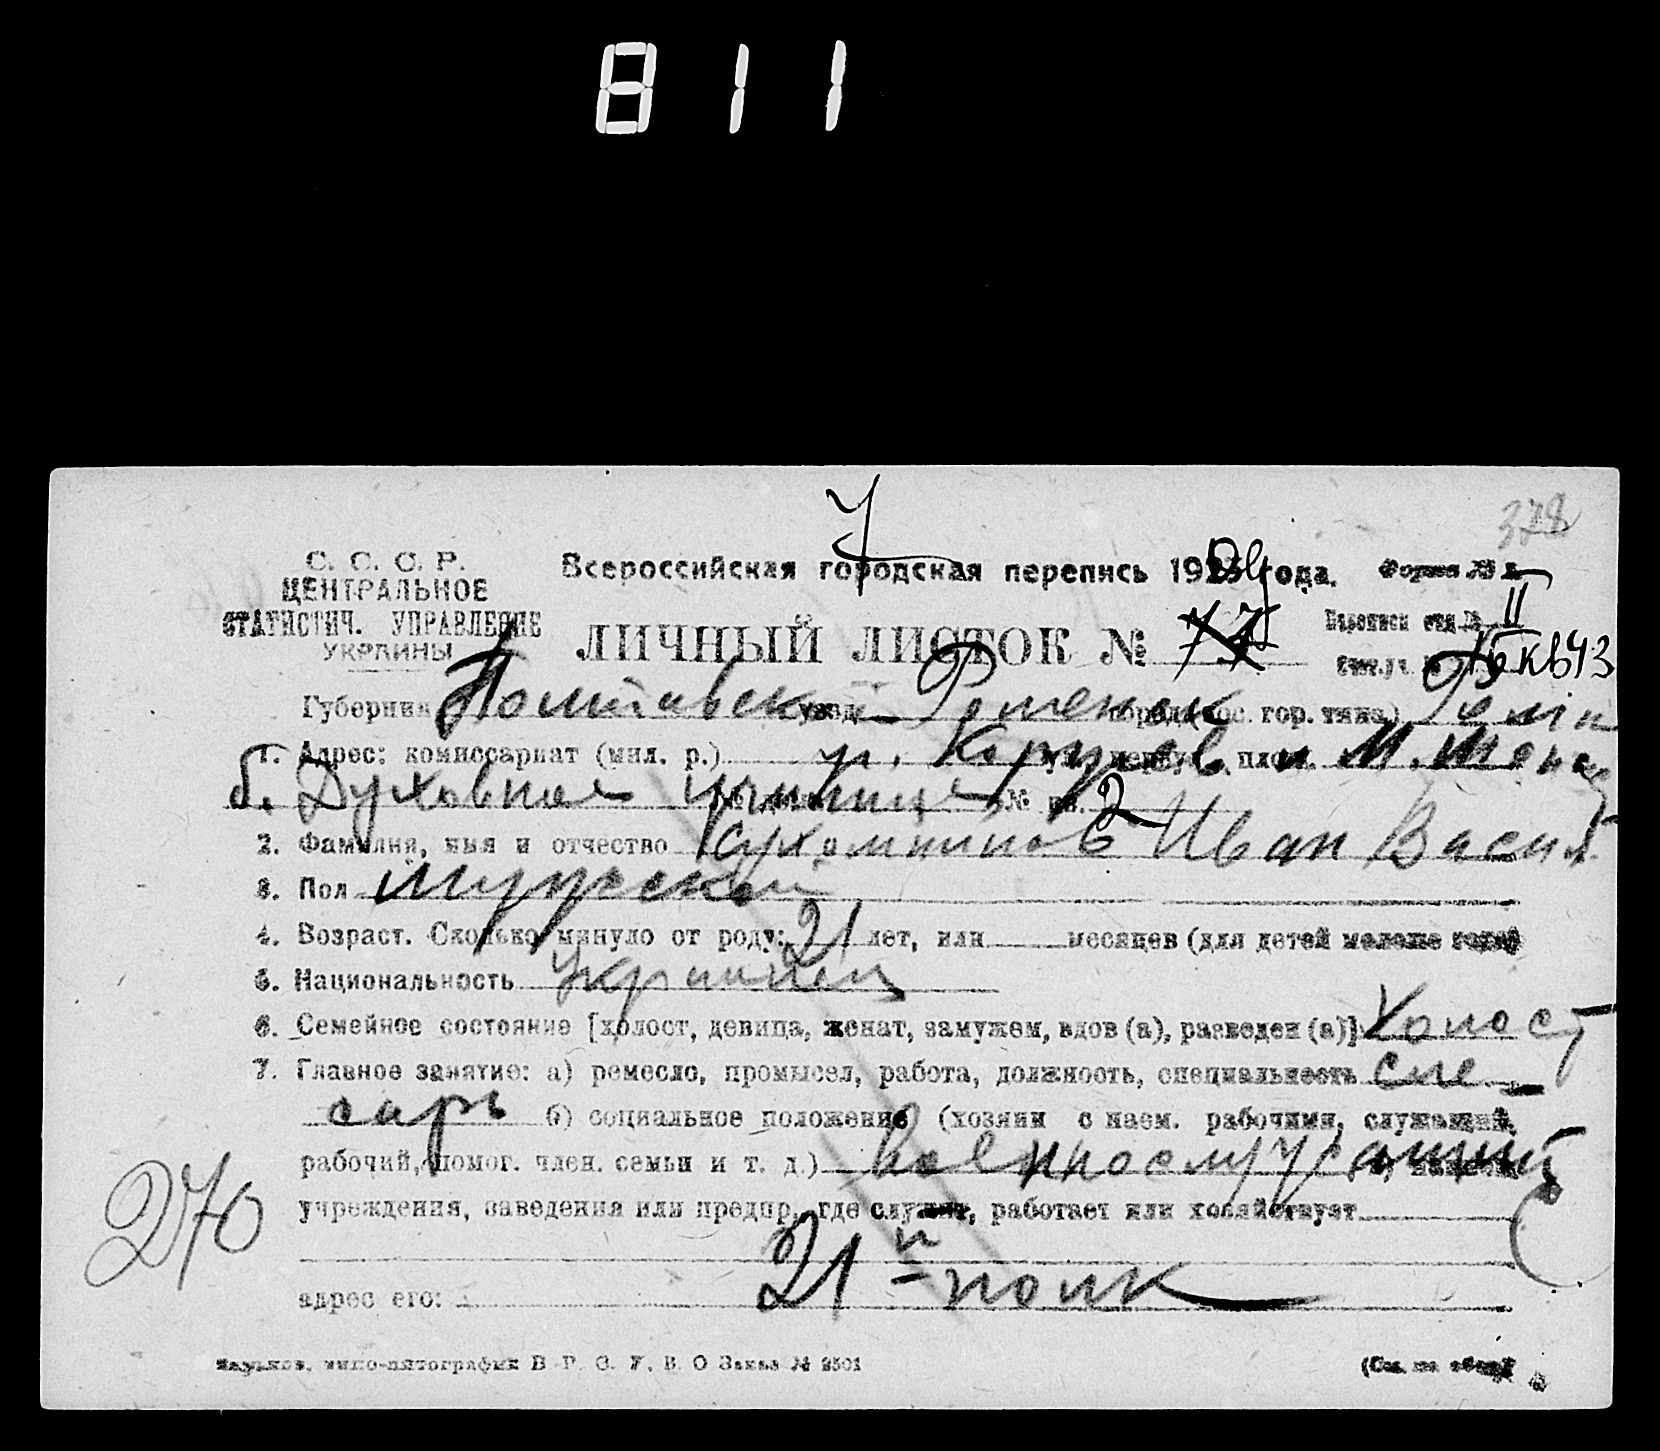 811
7
378
С. С. С. Р.
ЦЕНТРАЛЬНОЕ
СТАТИСТИЧ. УПРАВЛЕНИЕ
УКРАИНЫ
Всероссийская городская перепись 1923 года.
Форма №
ЛИЧНЫЙ ЛИСТОК №
Переписн отд № II
Губерния Полтавск уезд Роменск город (пос. гор. типа)
1. Адрес: комиссариат (мил. р.) у.
б. Духовное училище № кв. 2
2. Фамилия, имя и отчество Сухомлинов Иван Васил
3. Пол Мужской
4. Возраст. Сколько минуло от роду: 21 лет, или месяцев (для детей моложе года)
5. Национальность Украинец
6. Семейное состояние [холост, девица, женат, замужем, вдов (а), разведен (а)] Холост
7. Главное занятие: а) ремесло, промысел, работа, должность, специальность сле-
сарь б) социальное положение (хозяин с наем. рабочими, служащий,
рабочий, помог. член. семьи и т. д.) военнослужащий
270
учреждения, заведения или предпр., где служит, работает или хозяйствует
21й полк
адрес его:
Харьков, Заказ № 2501
(См. на обор.)